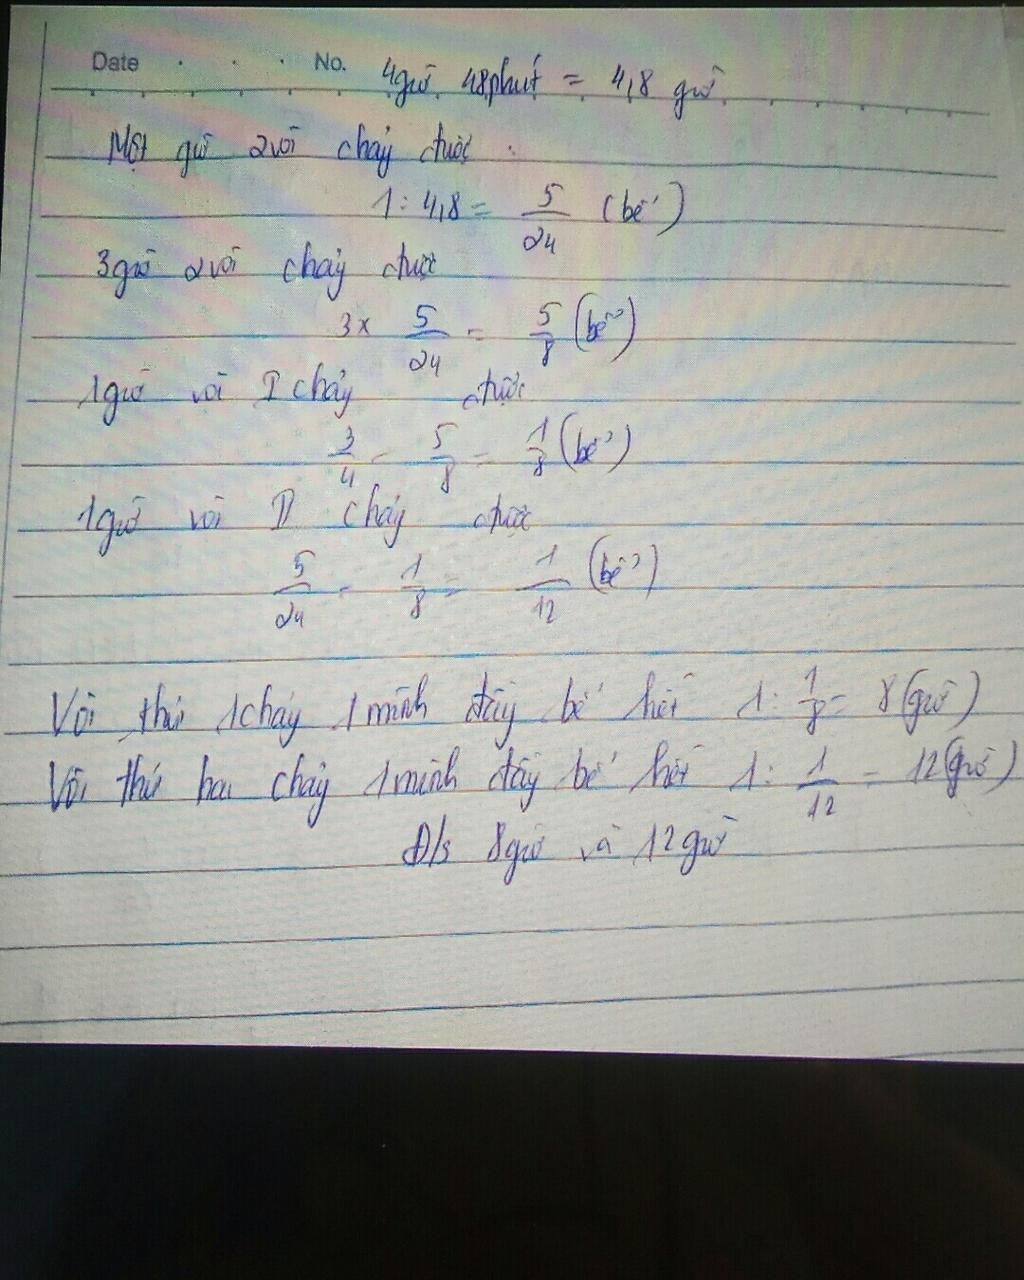 Date . . . No. 4giờ 48phút = 4,8 giờ
Một giờ 2vòi chảy được
1 : 4,8 = 5/24 (bể)
3giờ 2vòi chảy được
3 x 5/24 = 5/8 (bể)
1giờ vòi I chảy được
3/4 - 5/8 = 1/8 (bể)
1giờ vòi II chảy được
5/24 - 1/8 = 1/12 (bể)
Vòi thứ 1 chảy 1 mình đầy bể hết 1 : 1/8 = 8 (giờ)
Vòi thứ hai chảy 1 mình đầy bể hết 1 : 1/12 = 12 (giờ)
Đ/s 8giờ và 12 giờ